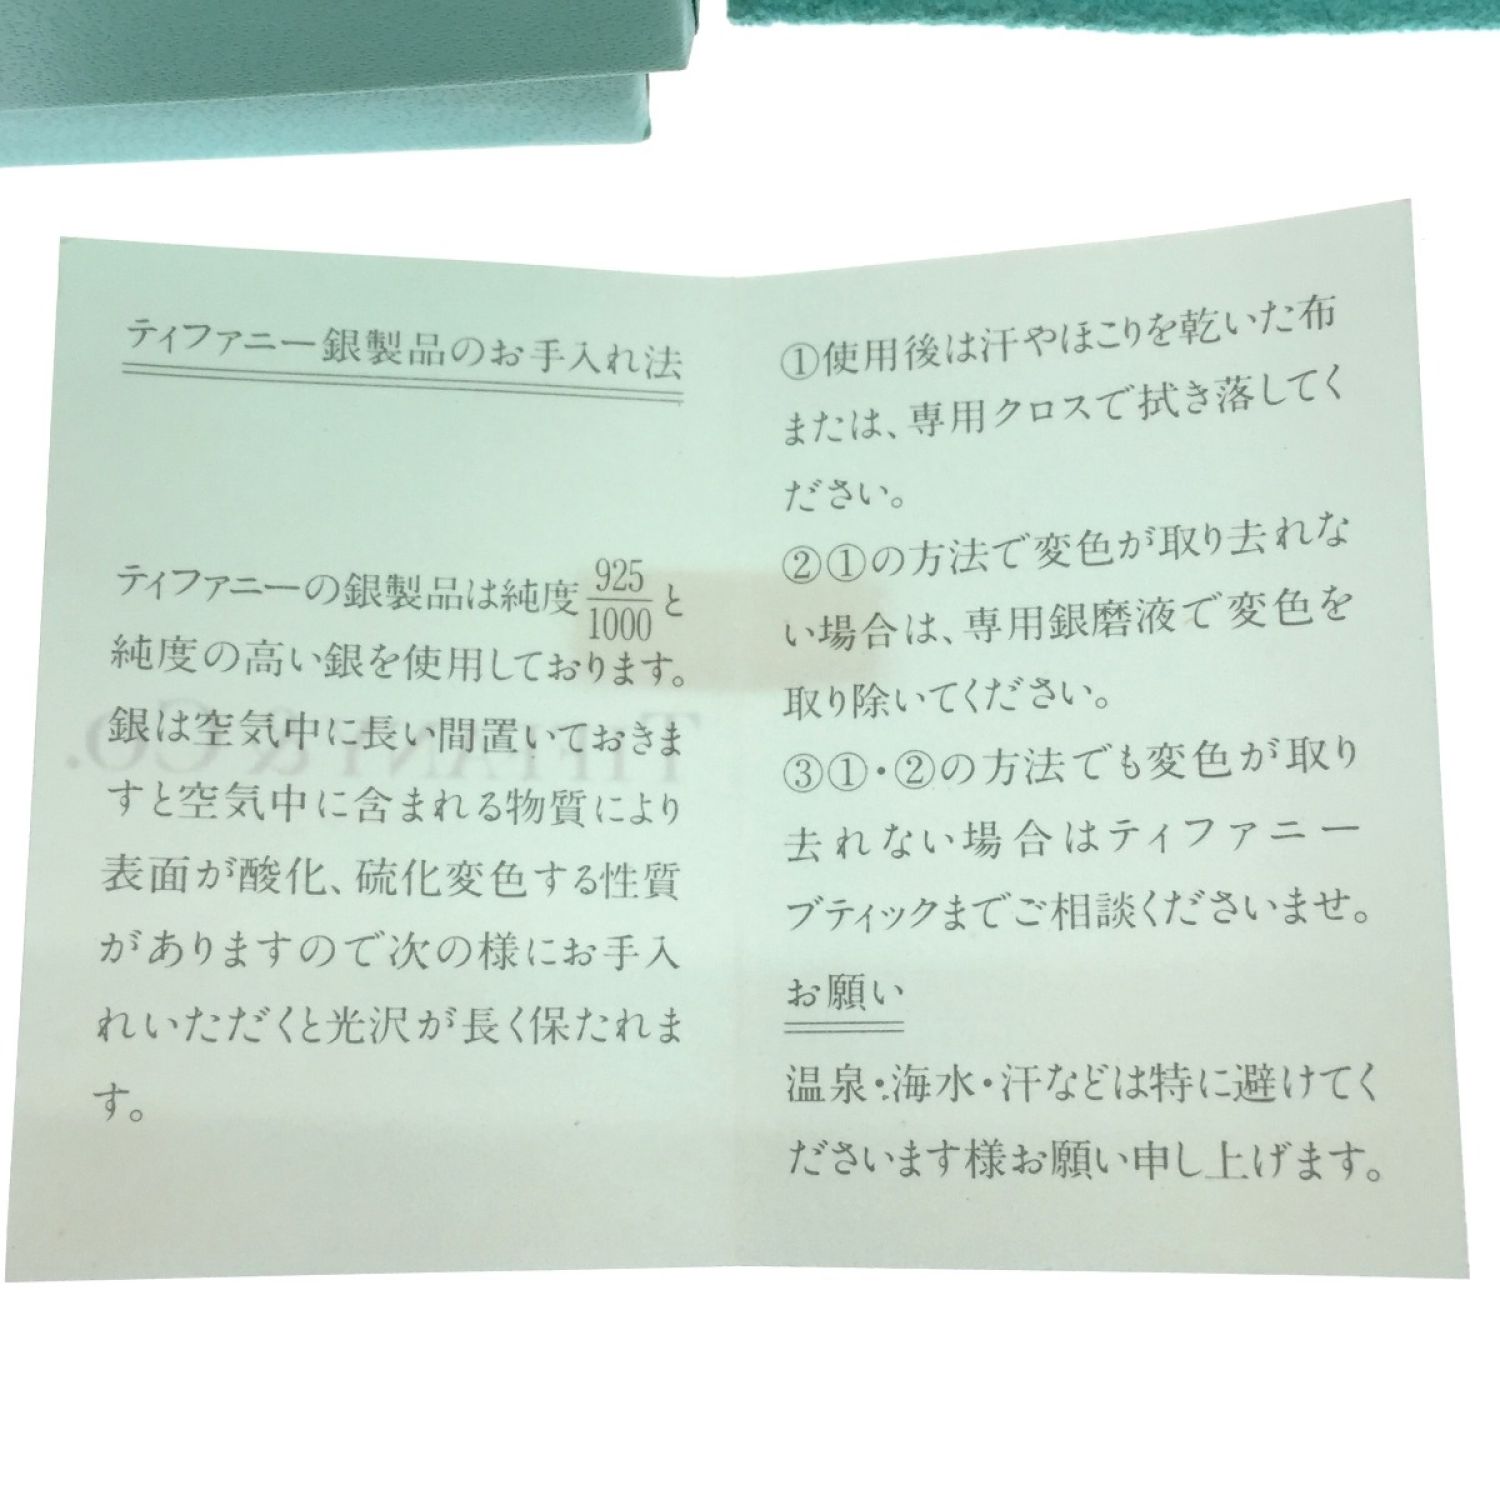 ティファニー銀製品のお手入れ法
ティファニーの銀製品は純度925/1000と
純度の高い銀を使用しております。
銀は空気中に長い間置いておきま
すと空気中に含まれる物質により
表面が酸化、硫化変色する性質
がありますので次の様にお手入
れいただくと光沢が長く保たれま
す。
①使用後は汗やほこりを乾いた布
または、専用クロスで拭き落してく
ださい。
②①の方法で変色が取り去れな
い場合は、専用銀磨液で変色を
取り除いてください。
③①・②の方法でも変色が取り
去れない場合はティファニー
ブティックまでご相談くださいませ。
お願い
温泉・海水・汗などは特に避けてく
ださいます様お願い申し上げます。
TIFFANY & CO.